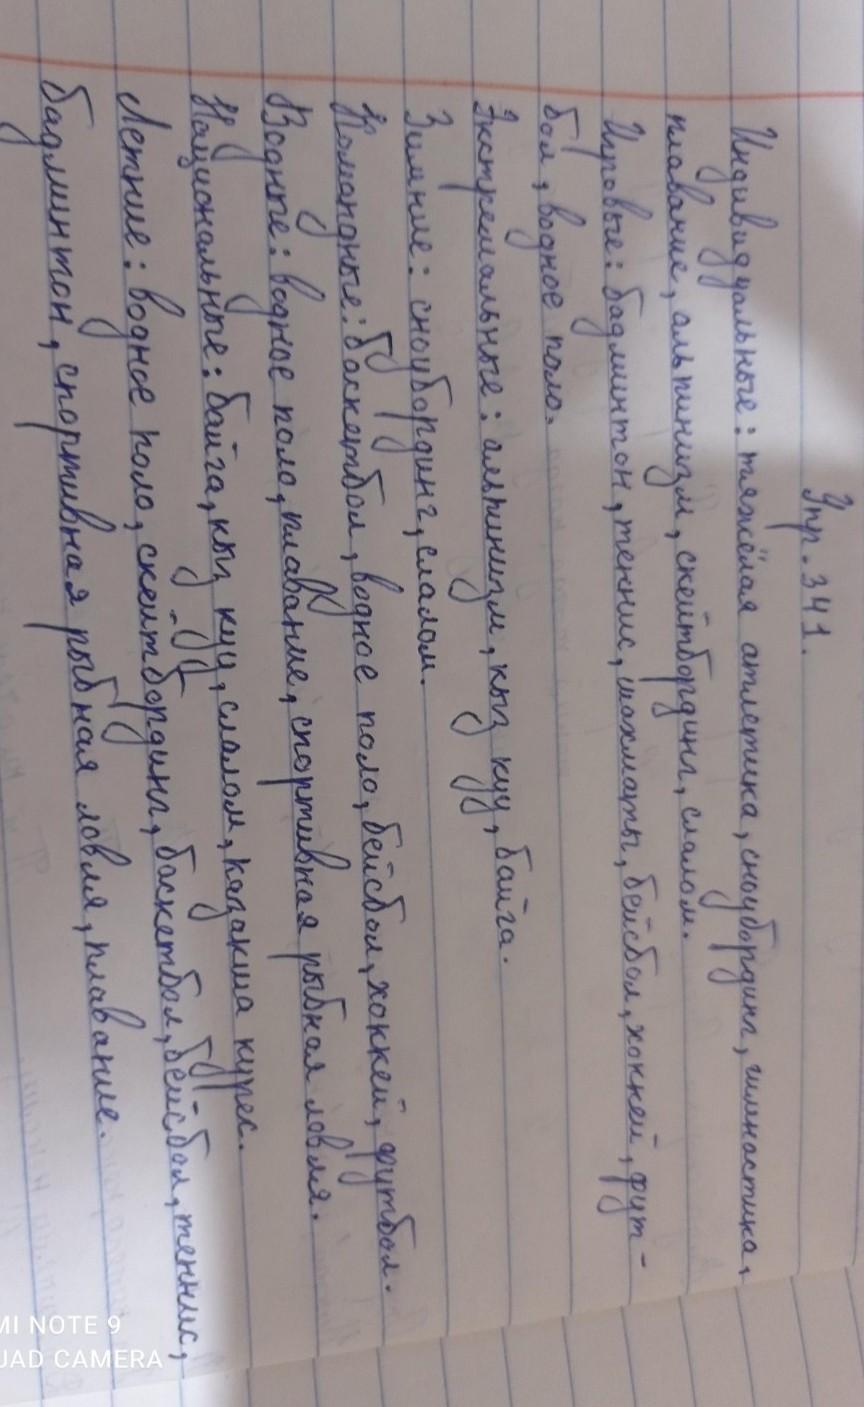 Упр. 341.
Индивидуальные: тяжёлая атлетика, сноубординг, гимнастика,
плавание, альпинизм, скейтбординг, слалом.
Игровые: бадминтон, теннис, шахматы, бейсбол, хоккей, фут-
бол, водное поло.
Экстремальные: альпинизм, кыз куу, байга.
Зимние: сноубординг, слалом.
Командные: баскетбол, водное поло, бейсбол, хоккей, футбол.
Водные: водное поло, плавание, спортивная рыбная ловля.
Национальные: байга, кыз куу, слалом, казакша курес.
Летние: водное поло, скейтбординг, баскетбол, бейсбол, теннис,
бадминтон, спортивная рыбная ловля, плавание.
MI NOTE 9
UAD CAMERA